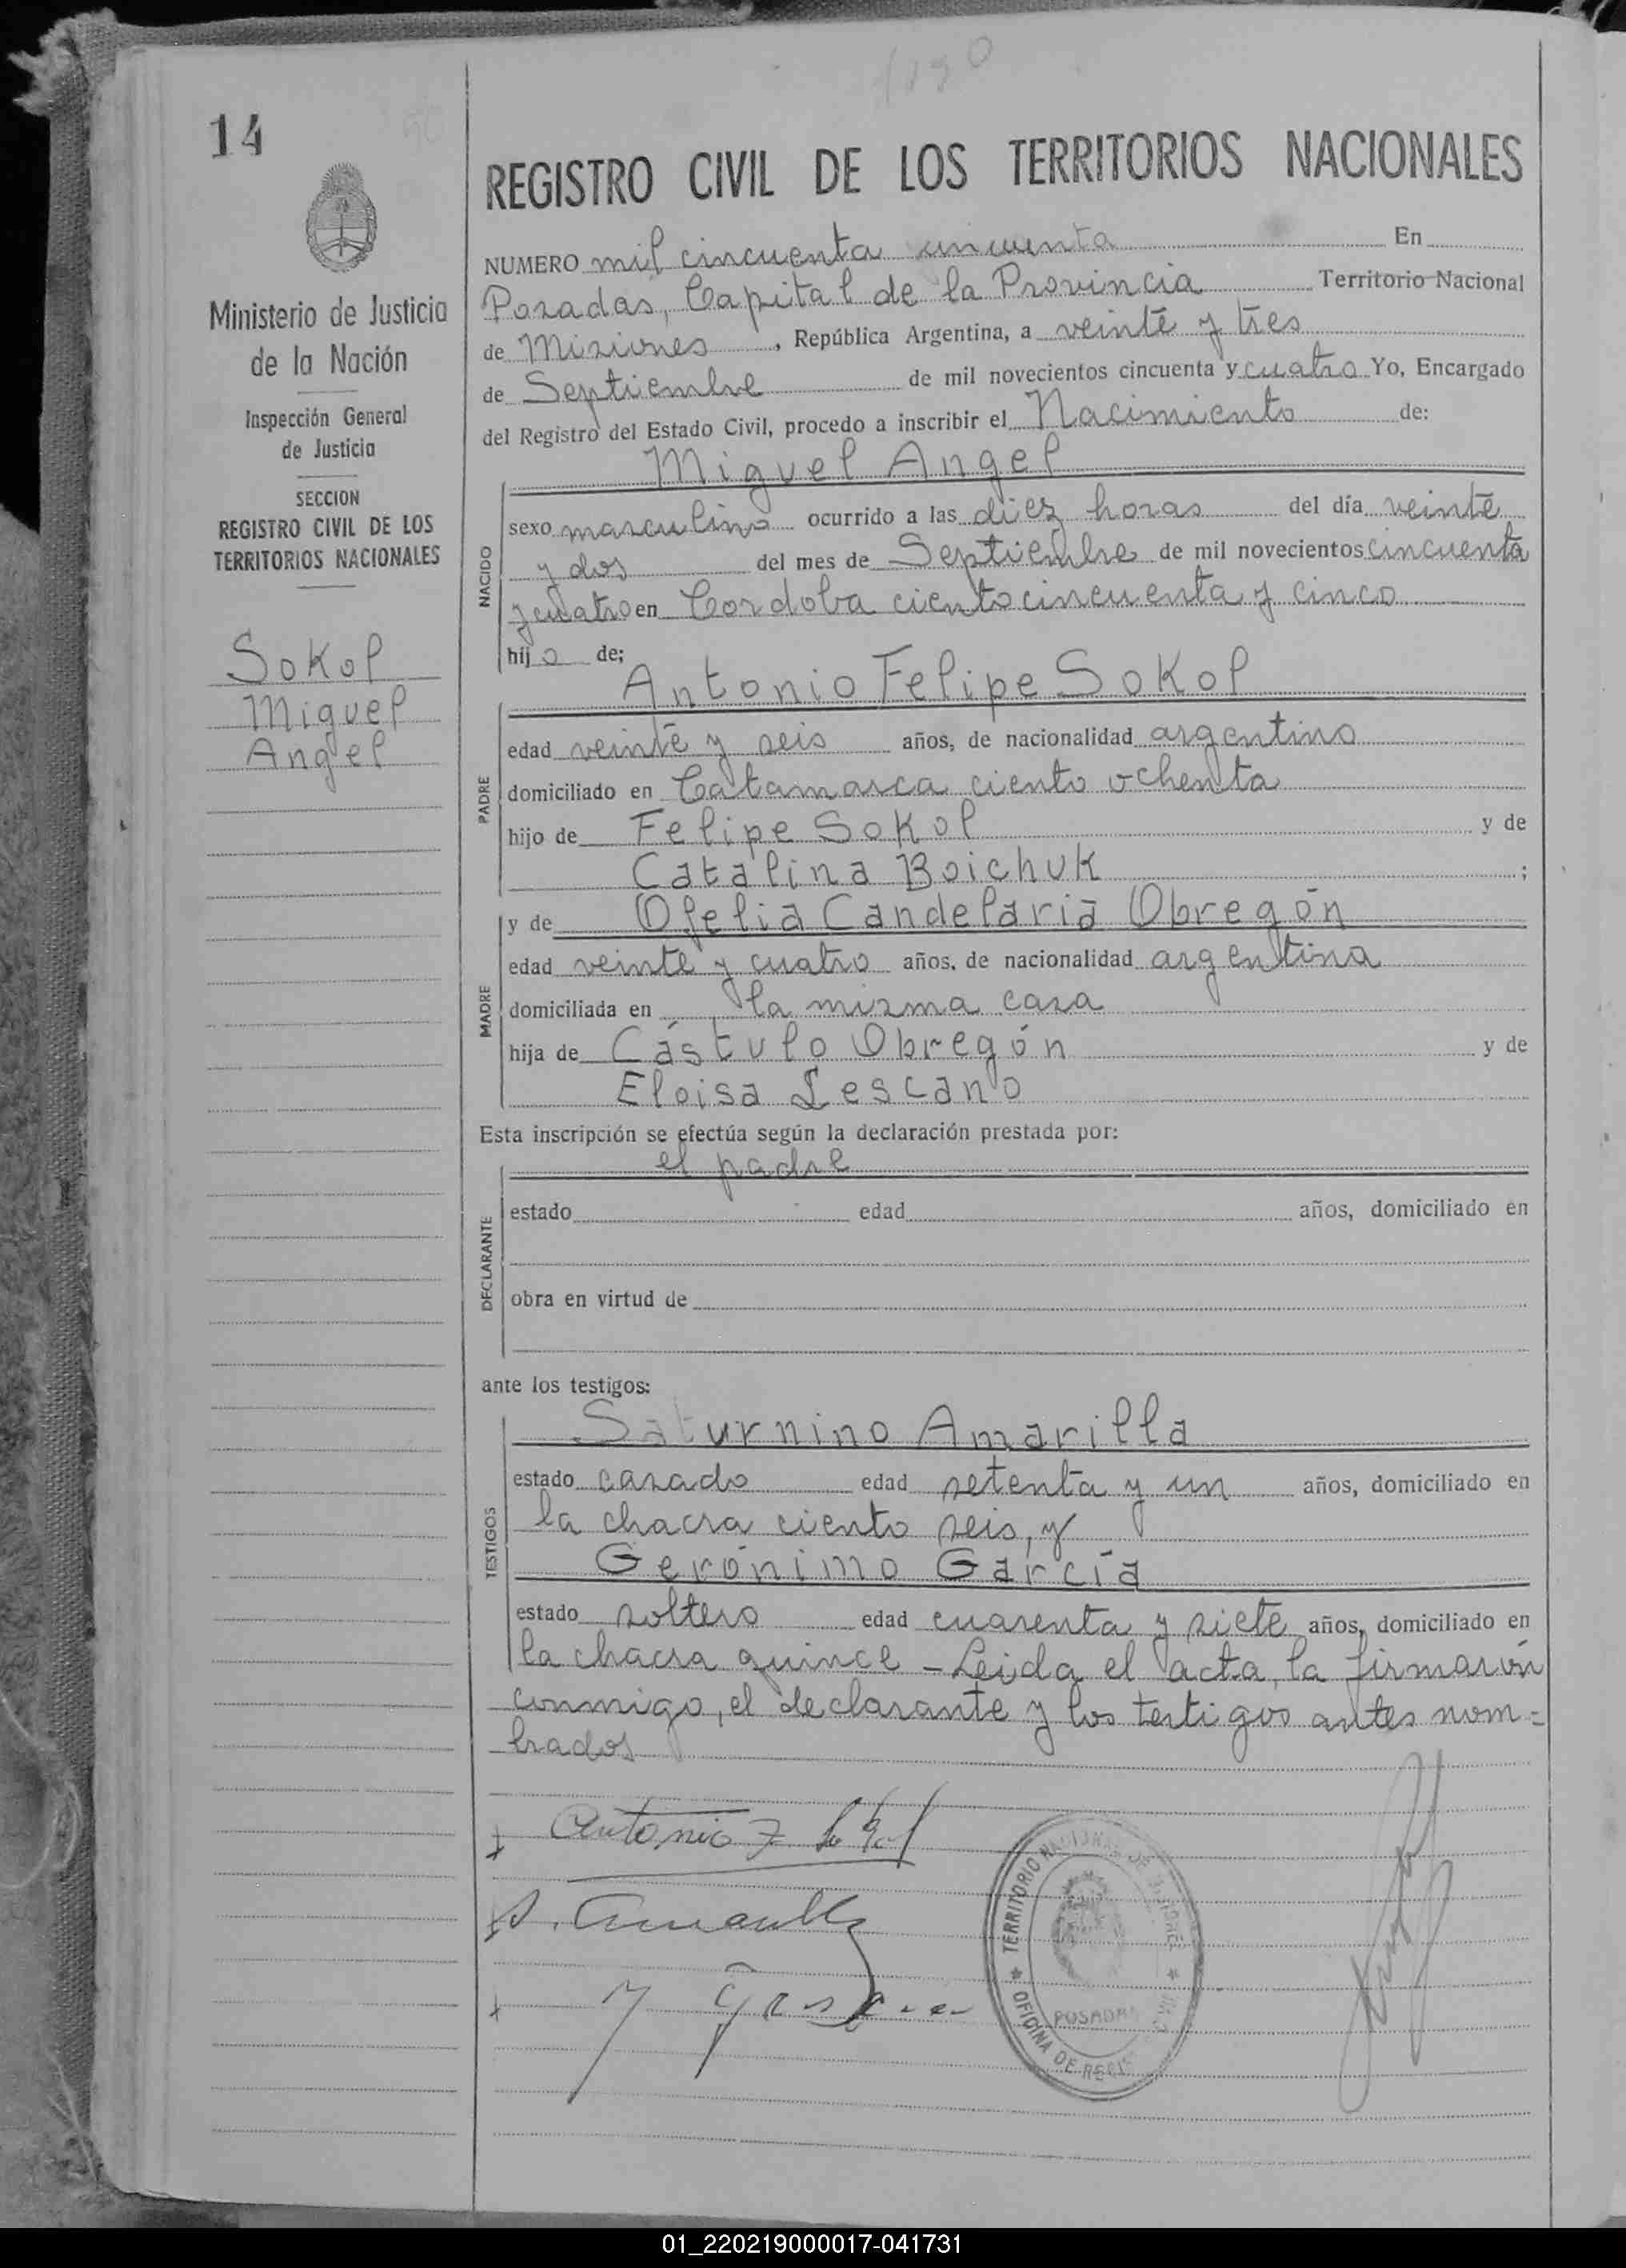 14
REGISTRO CIVIL DE LOS TERRITORIOS NACIONALES
Ministerio de Justicia
de la Nación
Inspección General
de Justicia
SECCION
REGISTRO CIVIL DE LOS
TERRITORIOS NACIONALES
Sokol
Miguel
Angel
NUMERO mil cincuenta En
Posadas, Capital de la Provincia Territorio Nacional
de Misiones, República Argentina, a veinte y tres
de Septiembre de mil novecientos cincuenta y cuatro Yo, Encargado
del Registro del Estado Civil, procedo a inscribir el Nacimiento de:
Miguel Angel
NACIDO
sexo masculino ocurrido a las diez horas del día veinte
y dos del mes de Septiembre de mil novecientos cincuenta
y cuatro en Cordoba ciento cincuenta y cinco
hijo de;
Antonio Felipe Sokol
PADRE
edad veinte y seis años, de nacionalidad argentino
domiciliado en Catamarca ciento ochenta
hijo de Felipe Sokol y de
Catalina Boichuk ;
y de Ofelia Candelaria Obregón
MADRE
edad veinte y cuatro años, de nacionalidad argentina
domiciliada en la misma casa
hija de Cástulo Obregón y de
Eloisa Lescano
Esta inscripción se efectúa según la declaración prestada por:
el padre
DECLARANTE
estado edad años, domiciliado en
obra en virtud de
ante los testigos:
Saturnino Amarilla
TESTIGOS
estado casado edad setenta y un años, domiciliado en
la chacra ciento seis, y
Gerónimo García
estado soltero edad cuarenta y siete años, domiciliado en
la chacra quince - Leida el acta, la firmaron
conmigo, el declarante y los testigos antes nom=
brados
Antonio F Sokol
S. Amarilla
TERRITORIO NACIONAL DE MISIONES
POSADAS
OFICINA DE REGISTRO
01_220219000017-041731